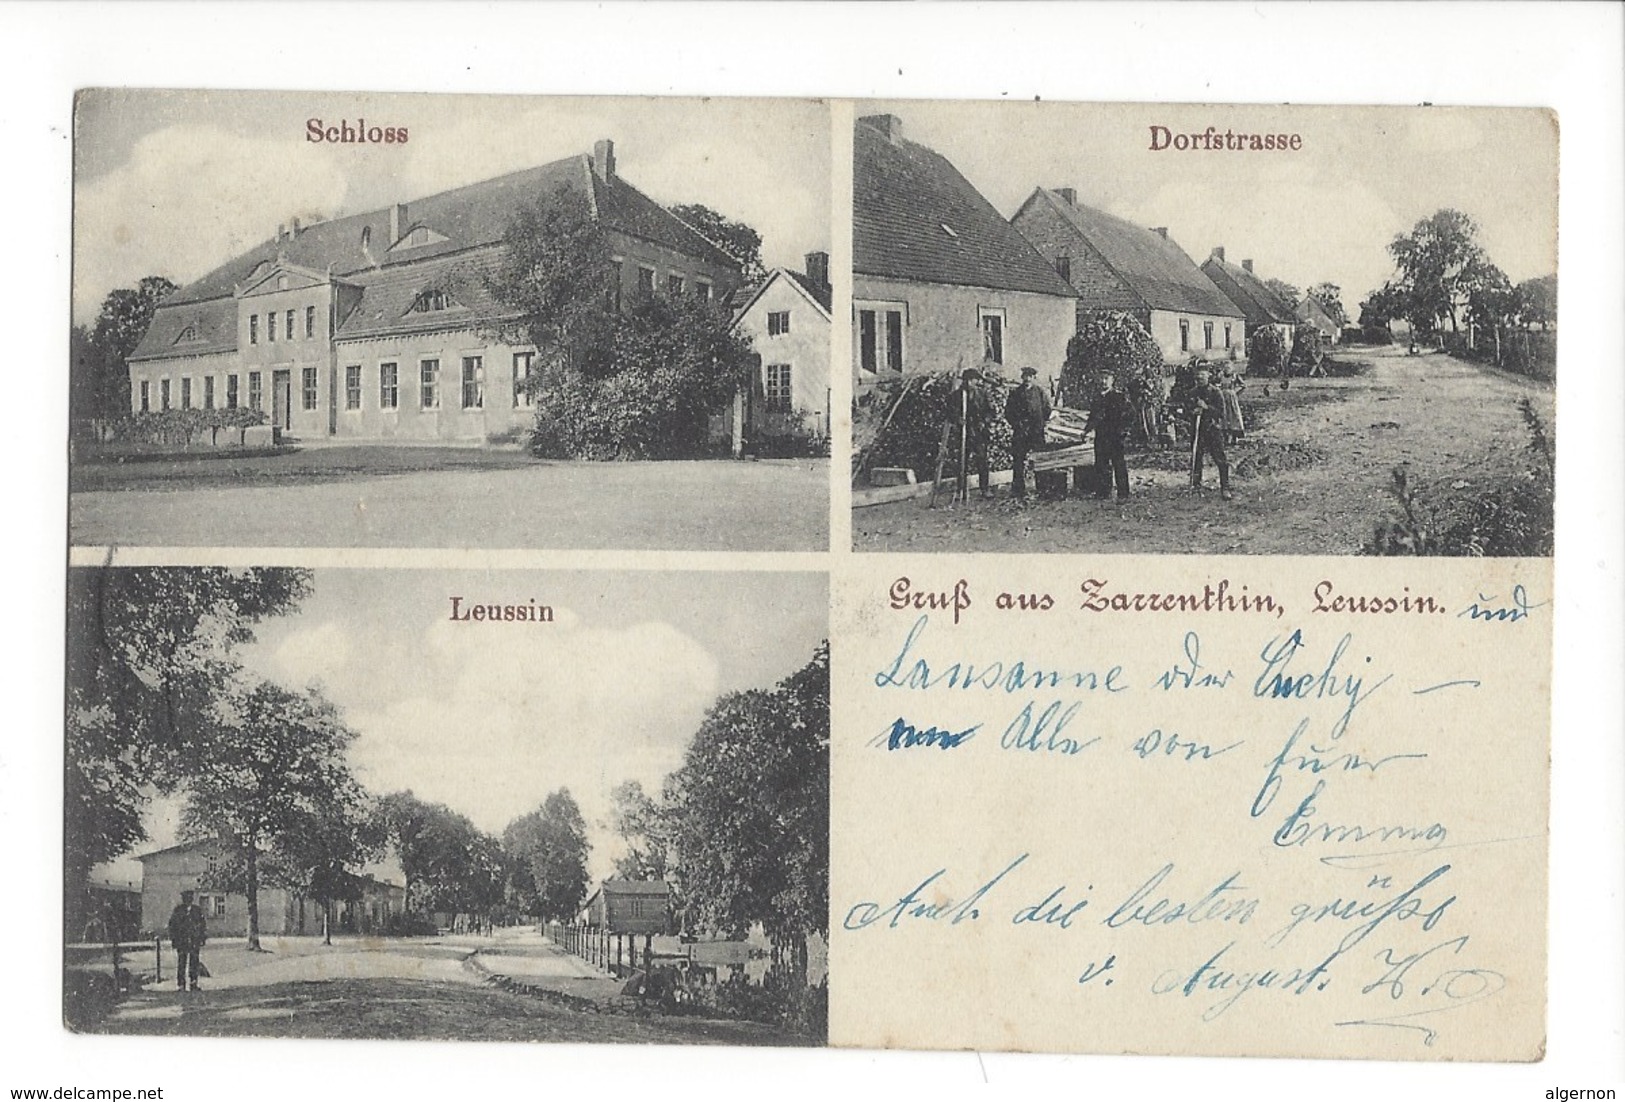 Schloss
Dorfstrasse
Leussin
Gruß aus Zarrenthin, Leussin. und
Lausanne oder Ouchy –
Alle von Euer
Emma
Auch die besten grüße
v. August.
www.delcampe.net
algernon